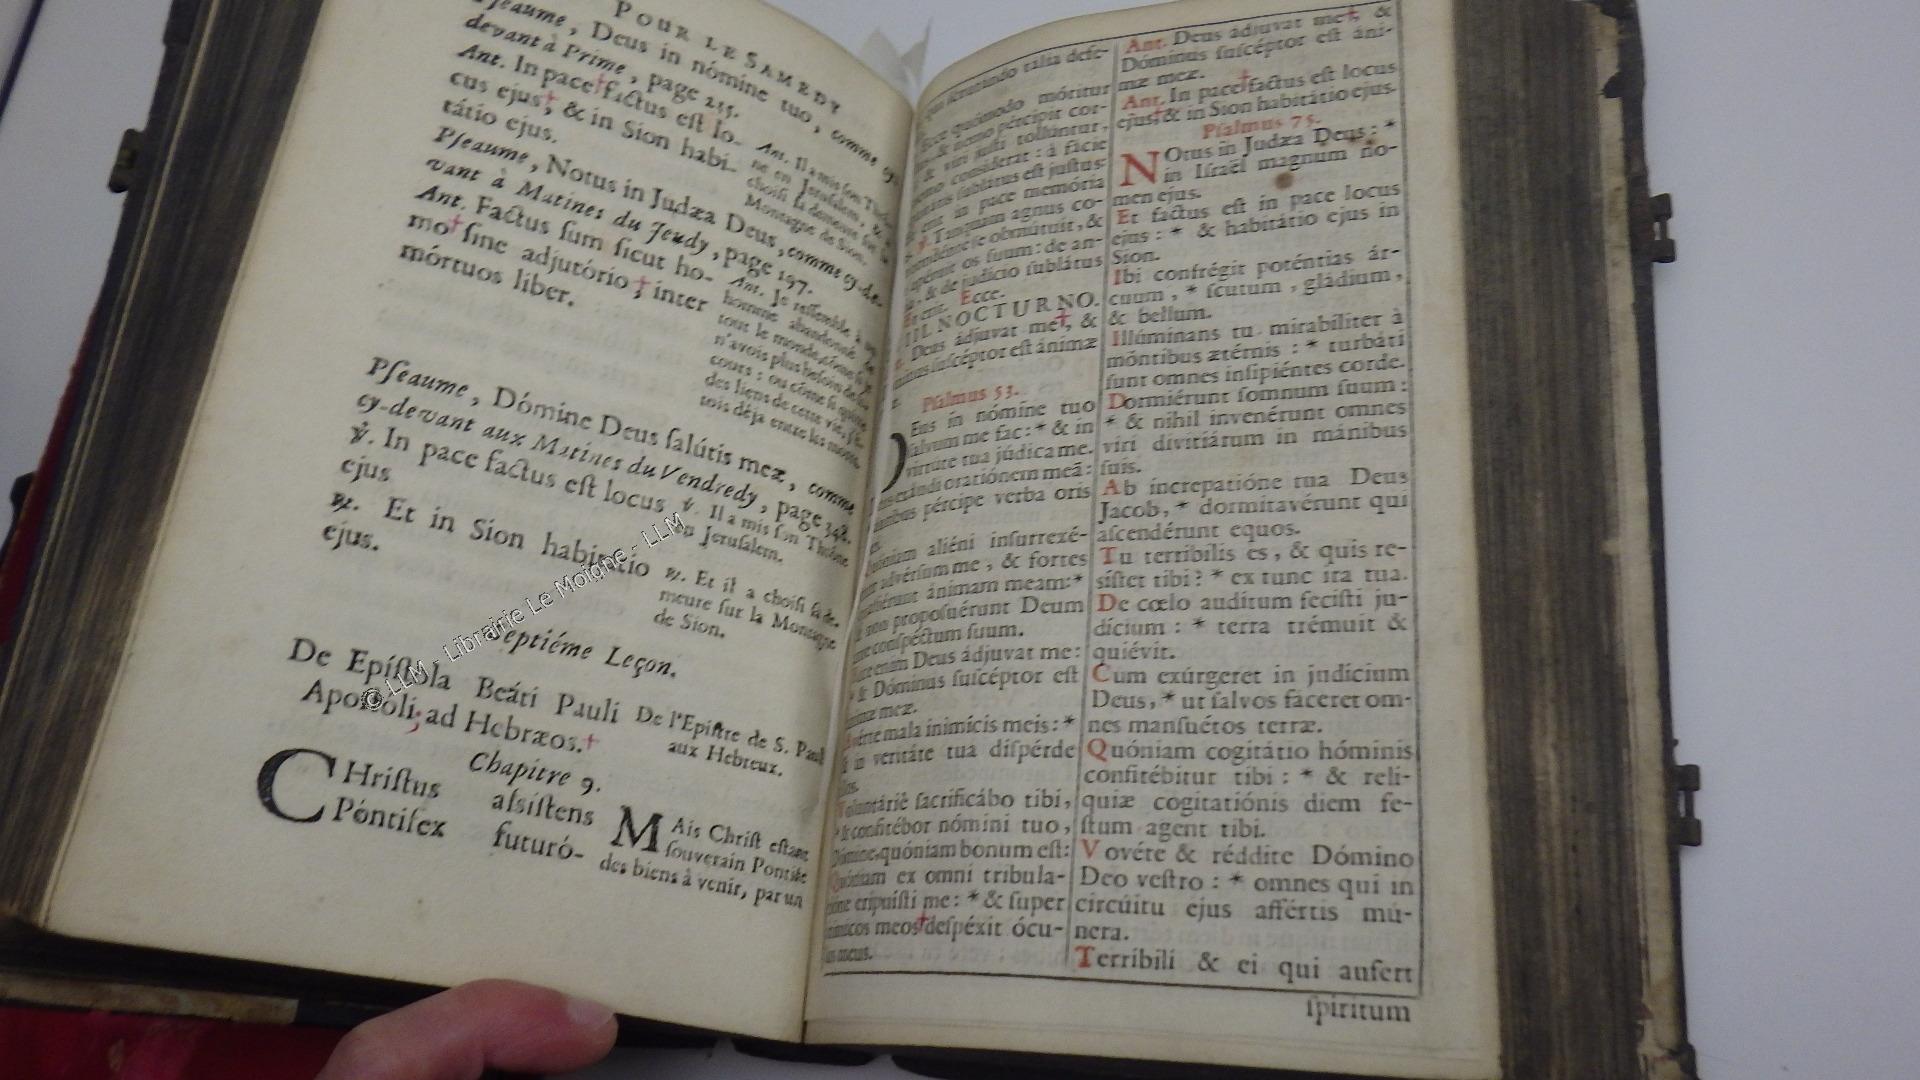 POUR LE SAMEDY
Pſeaume, Deus in nómine tuo, comme cy-
devant à Prime, page 235.
Ant. In pace † factus eſt lo-
cus ejus †, & in Sion habi-
tátio ejus.
Ant. Il a mis ſon Thrône
ne en Jeruſalem, & a
choiſi ſa demeure ſur la
Montagne de Sion.
Pſeaume, Notus in Judæa Deus, comme cy-de-
vant à Matines du Jeudy, page 197.
Ant. Factus ſum ſicut ho-
mo † ſine adjutório † inter
mórtuos liber.
Ant. Je reſſemble à un
homme abandonné de
tout le monde, cóme ſi je
n'avois plus beſoin de
cours : ou cóme ſi
des liens de cette vie,
tois déja entre les morts.
Pſeaume, Dómine Deus ſalútis meæ, comme
cy-devant aux Matines du Vendredy, page 348.
℣. In pace factus eſt locus
ejus
℣. Il a mis ſon Thrône
en Jeruſalem.
℟. Et in Sion habitátio
ejus.
℟. Et il a choiſi ſa de-
meure ſur la Montagne
de Sion.
Septiéme Leçon.
De Epíſtola Beáti Pauli
Apoſtoli ad Hebræos. †
De l'Epiſtre de S. Paul
aux Hebreux.
Chapitre 9.
CHriſtus aſsiſtens
Póntifex futuró-
MAis Chriſt eſtant
ſouverain Pontife
des biens à venir, par un
tália deſe-
Ecce quómodo móritur
& nemo pércipit cor-
& viri juſti tollúntur,
nemo consíderat : à fácie
ſublátus eſt juſtus:
erit in pace memória
℣. Tamquam agnus co-
ſe obmútuit, &
os ſuum: de an-
& de judício ſublátus
Ecce.
NOCTURNO.
Deus ádjuvat me †, &
ſuſcéptor eſt ánimæ
Pſalmus 53.
DEus in nómine tuo
ſalvum me fac: * & in
virtúte tua júdica me.
exáudi oratiónem meã:
pércipe verba oris
aliéni inſurrexé-
advérſum me, & fortes
ánimam meam: *
non propoſuérunt Deum
conſpéctum ſuum.
enim Deus ádjuvat me:
* & Dóminus ſuſcéptor eſt
meæ.
mala inimícis meis: *
in veritáte tua diſpérde
Voluntáriè ſacrificábo tibi,
* & confitébor nómini tuo,
Dómine, quóniam bonum eſt:
Quóniam ex omni tribula-
eripuíſti me: * & ſuper
inimícos meos † deſpéxit ócu-
meus.
Ant. Deus ádjuvat me †, &
Dóminus ſuſcéptor eſt áni-
mæ meæ.
Ant. In pace † factus eſt locus
ejus † & in Sion habitátio ejus.
Pſalmus 75.
NOtus in Judæa Deus: *
in Iſraël magnum no-
men ejus.
Et factus eſt in pace locus
ejus : * & habitátio ejus in
Sion.
Ibi confrégit poténtias ár-
cuum, * ſcutum, gládium,
& bellum.
Illúminans tu mirabíliter à
móntibus ætérnis : * turbáti
ſunt omnes inſipiéntes corde.
Dormiérunt ſomnum ſuum:
* & nihil invenérunt omnes
viri divitiárum in mánibus
ſuis.
Ab increpatióne tua Deus
Jacob, * dormitavérunt qui
aſcendérunt equos.
Tu terríbilis es, & quis re-
síſtet tibi? * ex tunc ira tua.
De cœlo audítum feciſti ju-
dícium : * terra trémuit &
quiévit.
Cum exúrgeret in judícium
Deus, * ut ſalvos fáceret om-
nes manſuétos terræ.
Quóniam cogitátio hóminis
confitébitur tibi : * & relí-
quiæ cogitatiónis diem fe-
ſtum agent tibi.
Vovéte & réddite Dómino
Deo veſtro : * omnes qui in
circúitu ejus affértis mú-
nera.
Terríbili & ei qui aufert
ſpíritum
© LLM - Librairie Le Moigne - LLM